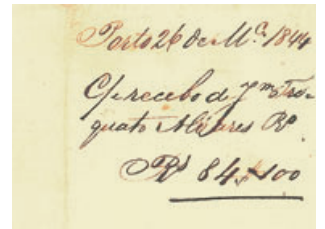 Porto 26 de M.ço 1844
C/ recebo de
quato Alvares Rº
Rs 84$100